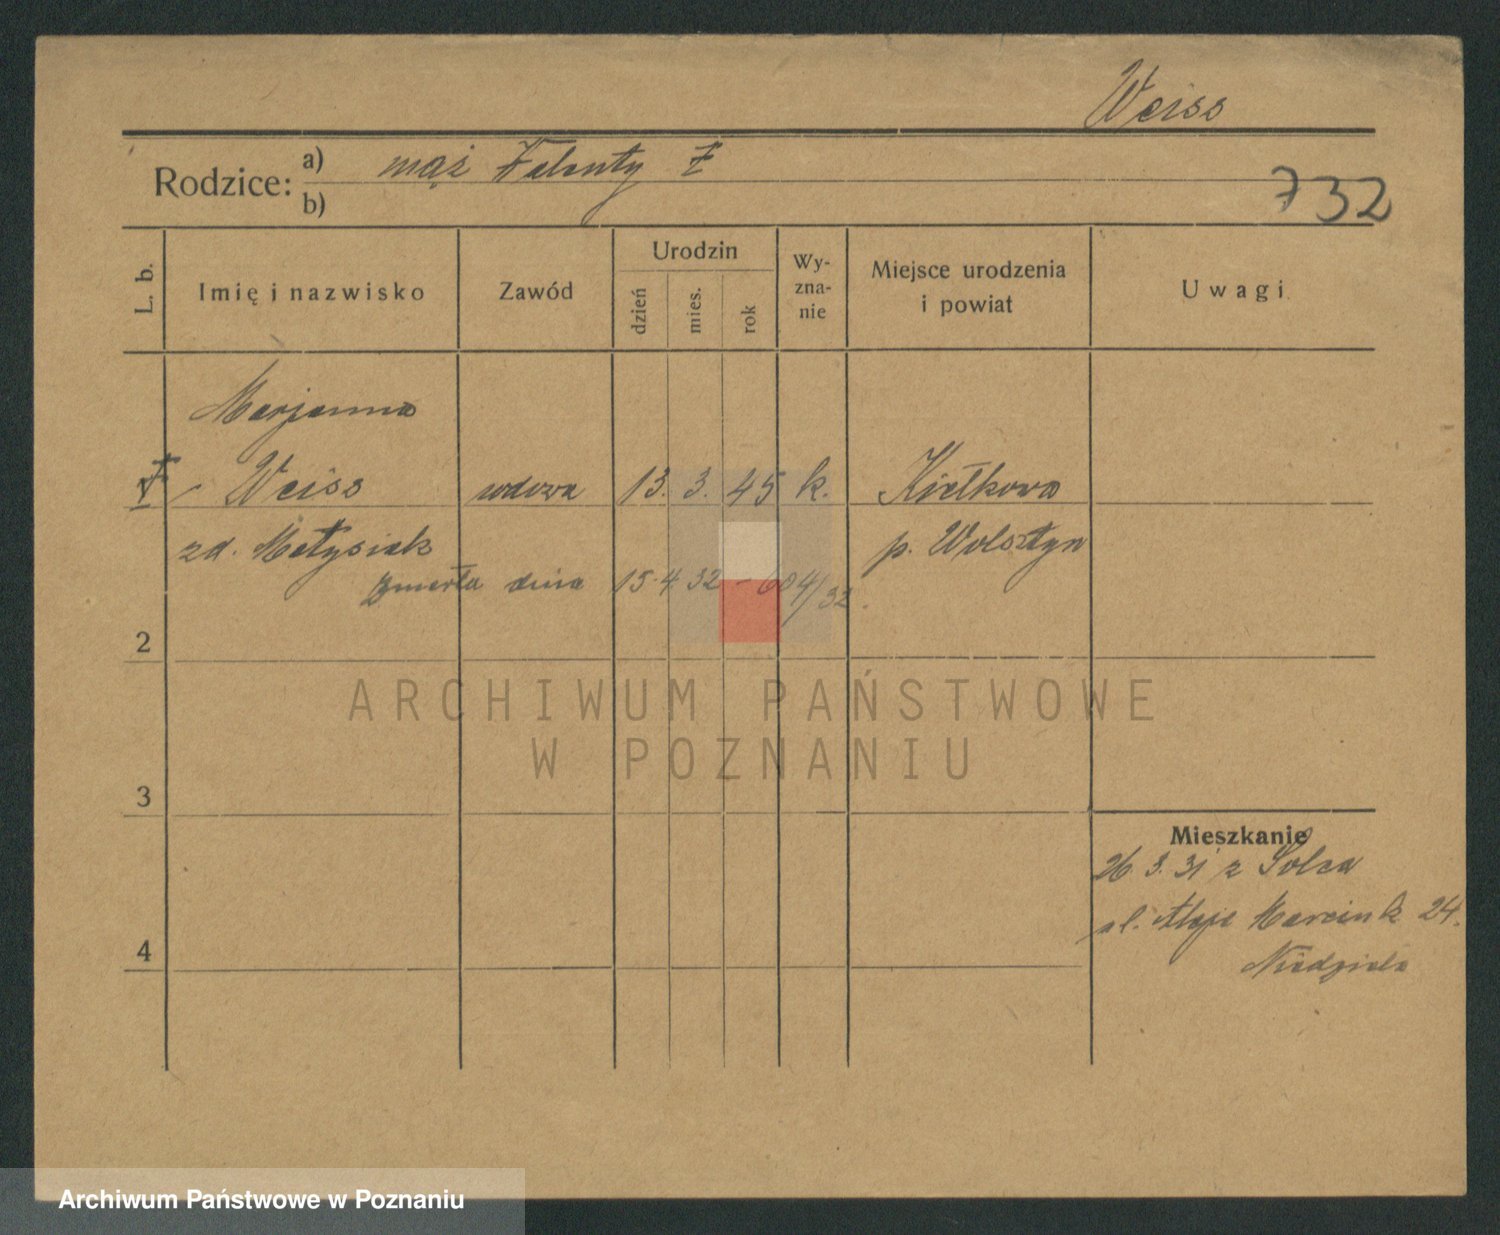 Weiss
Rodzice: a) mąż Walenty †
b)
732
L. b.
Imię i nazwisko
Zawód
Urodzin
dzień
mies.
rok
Wy-
zna-
nie
Miejsce urodzenia
i powiat
Uwagi
Marjanna
† 1 Weiss wdowa 13. 3. 45 k. Kiełkowo
zd. Matysiak p. Wolsztyn
Zmarła dnia 15.4.32 – 604/32.
2
ARCHIWUM PAŃSTWOWE
W POZNANIU
3
Mieszkanie
26.3.31 z Solca
ul. Aleje Marcink 24.
Niedziela
4
Archiwum Państwowe w Poznaniu